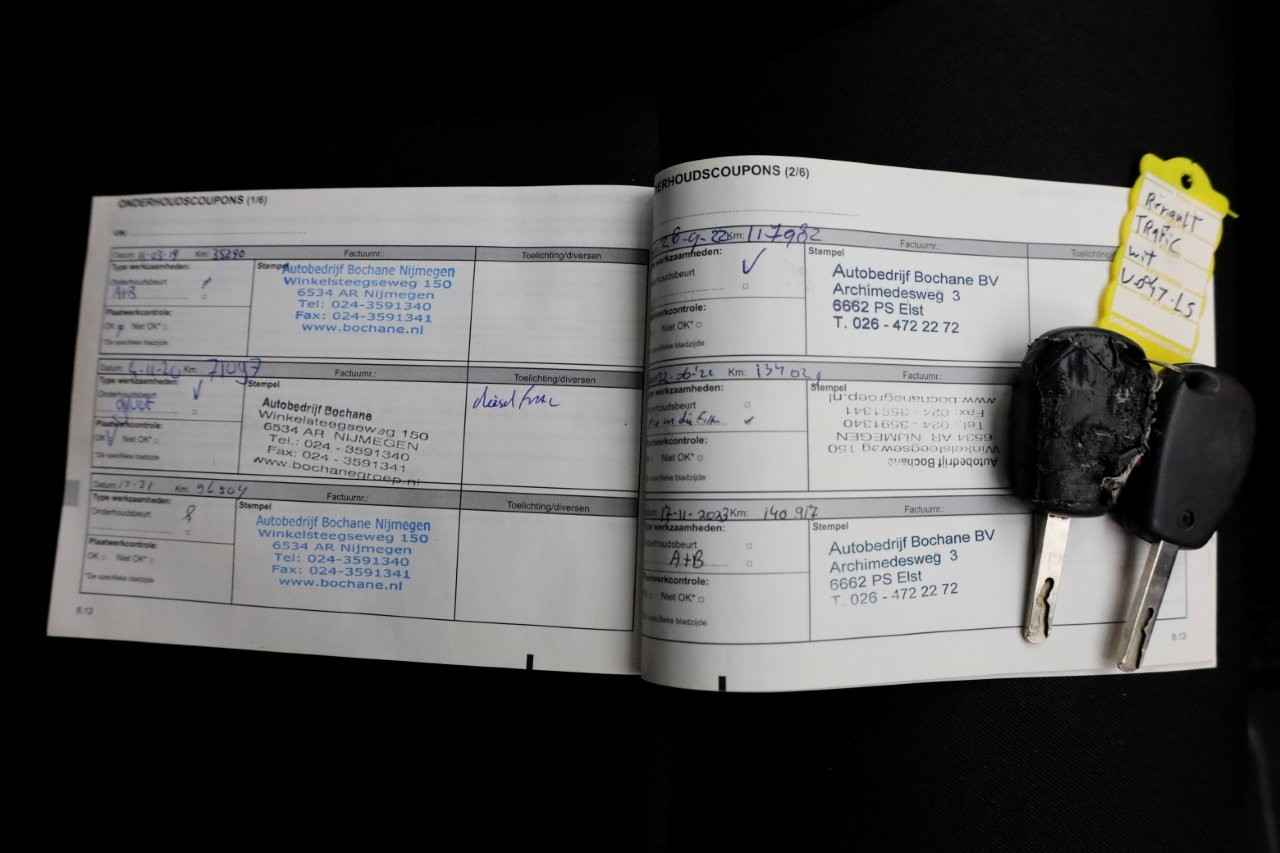 ONDERHOUDSCOUPONS (1/6)
VIN:
Datum: Km: 35290 Factuurnr.: Toelichting/diversen
Type werkzaamheden:
Onderhoudsbeurt
A+B
Plaatwerkcontrole:
OK Niet OK*
*Zie specifieke bladzijde
Stempel
Autobedrijf Bochane Nijmegen
Winkelsteegseweg 150
6534 AR Nijmegen
Tel: 024-3591340
Fax: 024-3591341
www.bochane.nl
Datum: Km: 71097 Factuurnr.: Toelichting/diversen
Type werkzaamheden:
Plaatwerkcontrole:
OK Niet OK*
*Zie specifieke bladzijde
Stempel
Autobedrijf Bochane
Winkelsteegseweg 150
6534 AR NIJMEGEN
Tel.: 024 - 3591340
Fax: 024 - 3591341
www.bochanegroep.nl
diesel
Datum: Km: 96504 Factuurnr.: Toelichting/diversen
Type werkzaamheden:
Onderhoudsbeurt
Plaatwerkcontrole:
OK Niet OK*
*Zie specifieke bladzijde
Stempel
Autobedrijf Bochane Nijmegen
Winkelsteegseweg 150
6534 AR Nijmegen
Tel: 024-3591340
Fax: 024-3591341
www.bochane.nl
6.12
ERHOUDSCOUPONS (2/6)
28-9-22 Km: 117982 Factuurnr.:
werkzaamheden:
houdsbeurt
werkcontrole:
Niet OK*
specifieke bladzijde
Stempel
Autobedrijf Bochane BV
Archimedesweg 3
6662 PS Elst
T. 026 - 472 22 72
Km: Factuurnr.:
werkzaamheden:
erhoudsbeurt
werkcontrole:
Niet OK*
specifieke bladzijde
Autobedrijf Bochane
Winkelsteegseweg 150
6534 AR NIJMEGEN
Tel.: 024 - 3591340
Fax: 024 - 3591341
www.bochanegroep.nl
17-11-2023 Km: 140917 Factuurnr.:
werkzaamheden:
erhoudsbeurt
A+B
Plaatwerkcontrole:
Niet OK*
specifieke bladzijde
Stempel
Autobedrijf Bochane BV
Archimedesweg 3
6662 PS Elst
T. 026 - 472 22 72
6.13
Renault
TRafic
wit